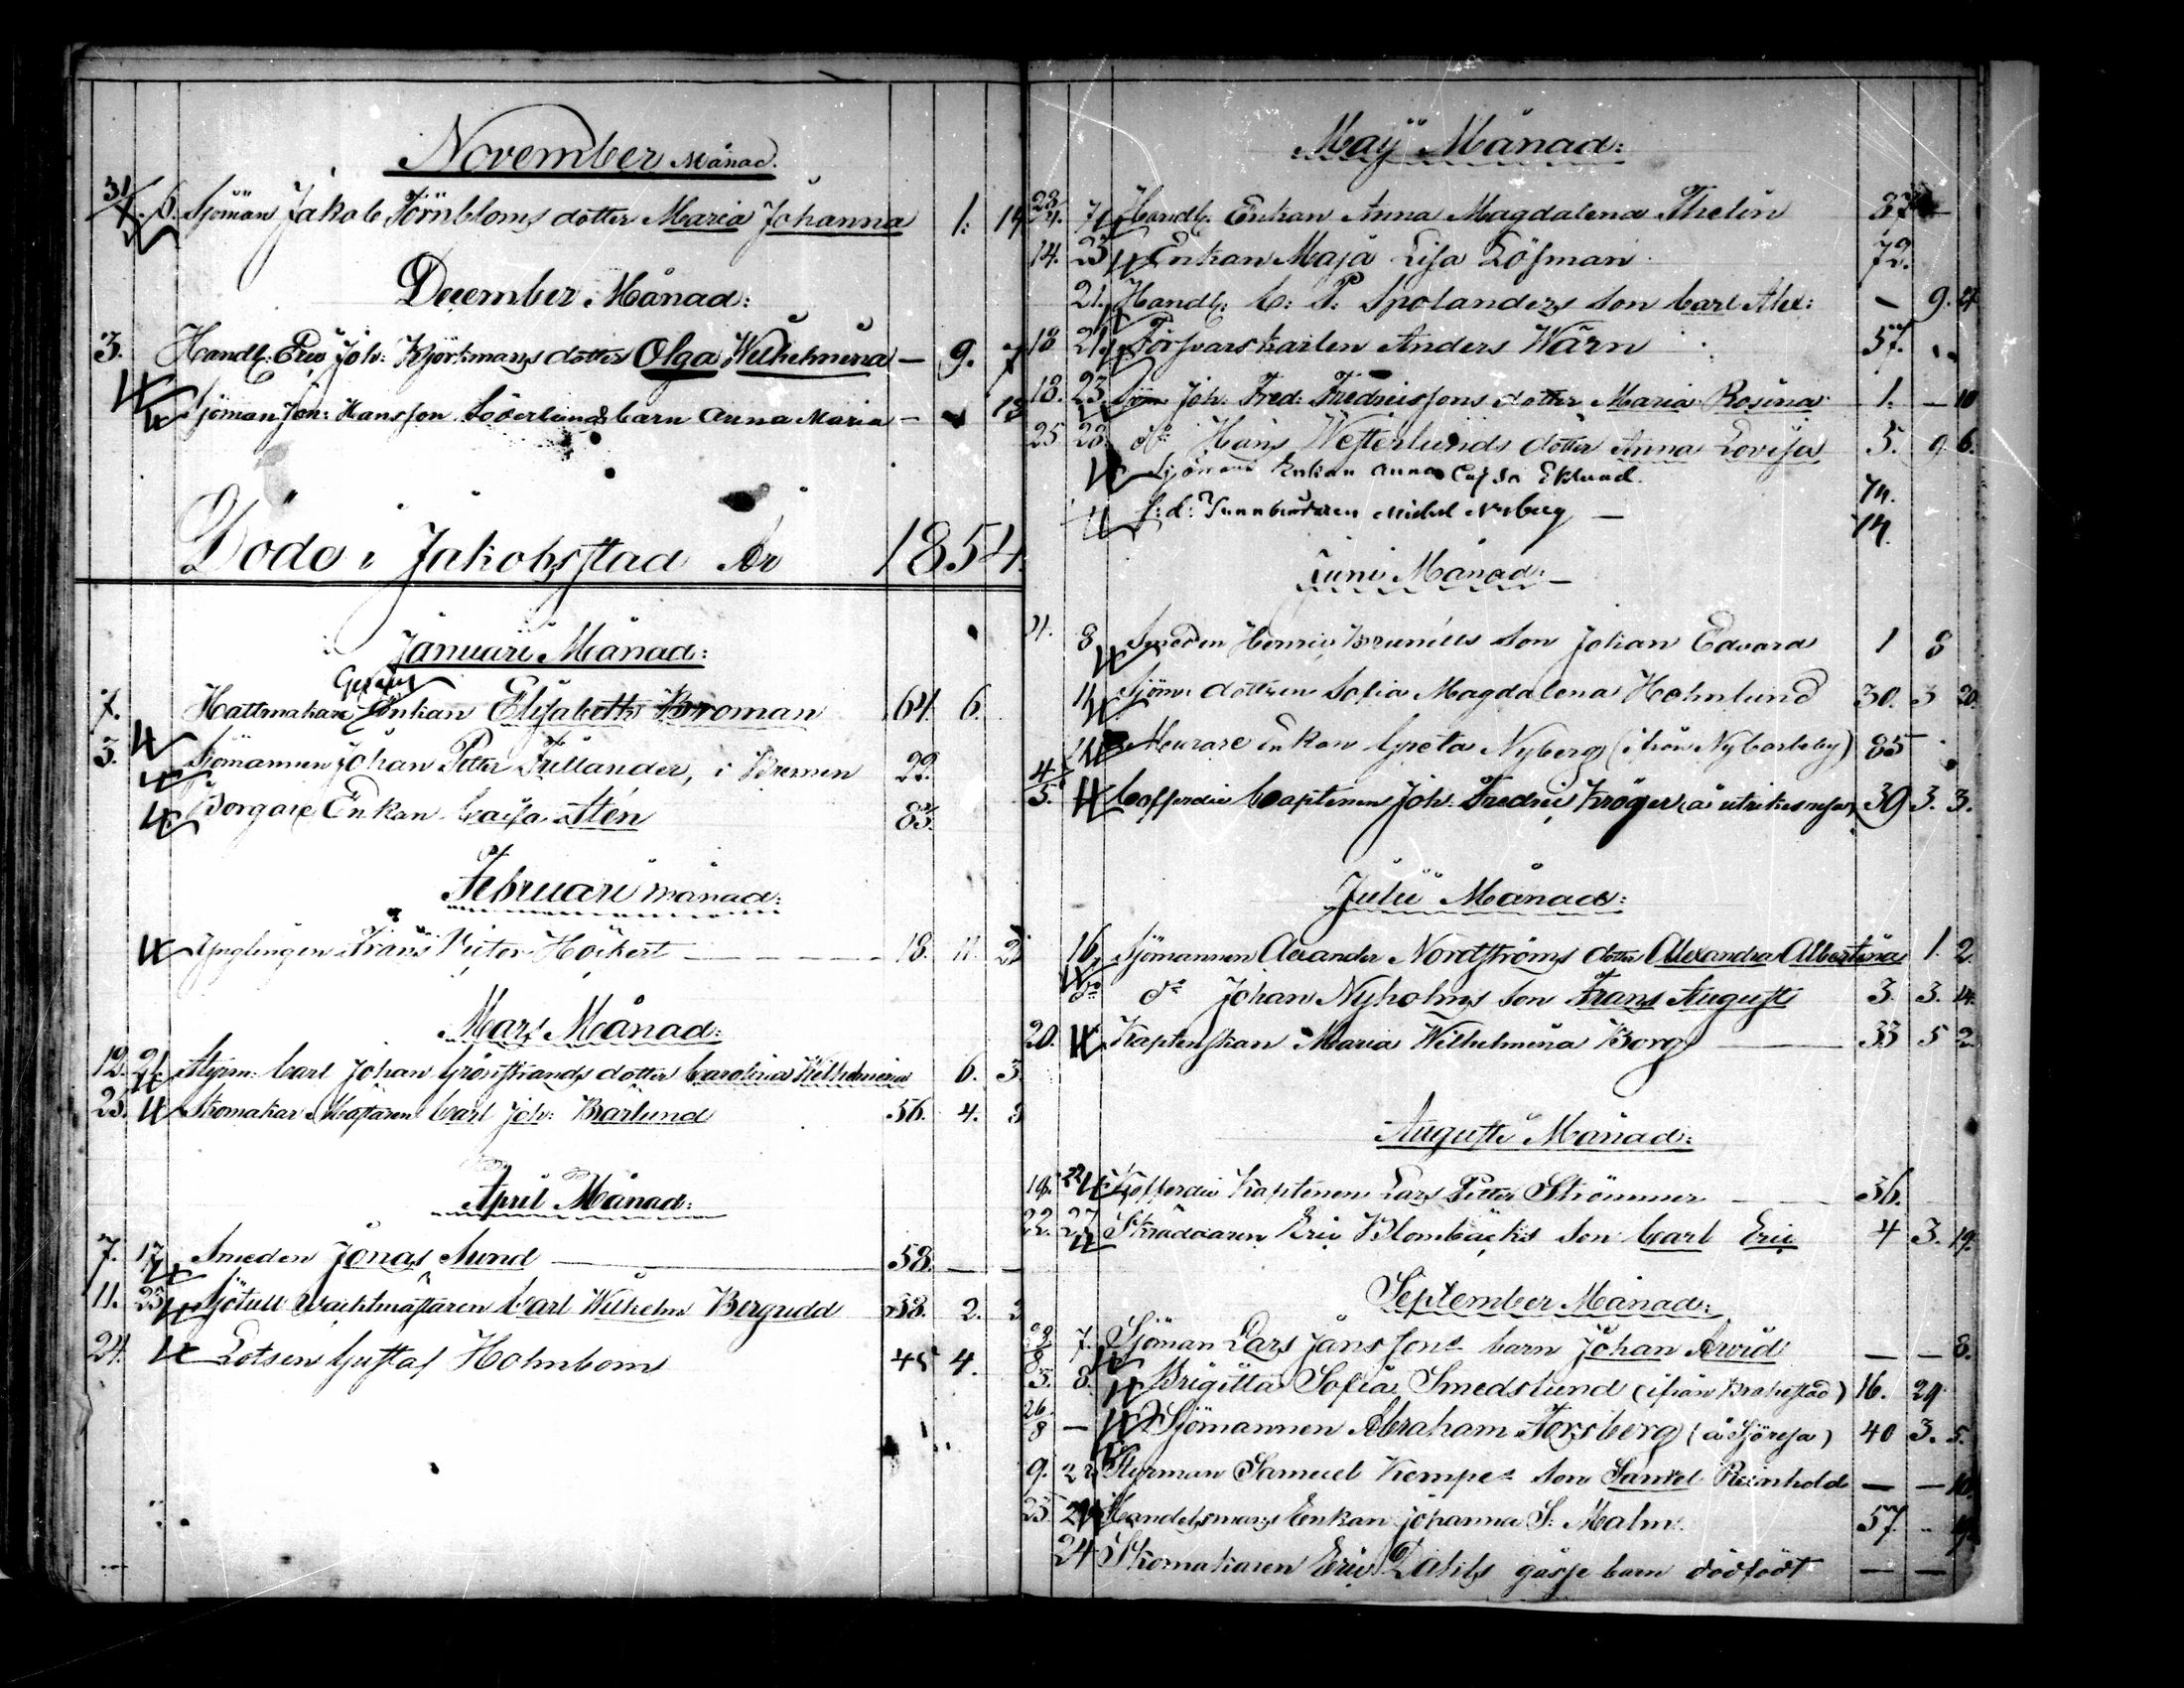 November Månad.
31/X. 6. Sjöman Jakob Törnbloms dotter Maria Johanna 1. 19
December Månad:
3. Handl: Eric Joh: Björkmans dotter Olga Wilhelmina — 9. 7
Sjöman Jon: Hansson Söderlunds barn Anna Maria — 13
Döde i Jakobsstad År 1854.
Januarii Månad:
7. Hattmakare Enkan Elisabeth Broman 64. 6.
3. Sjömannen Johan Petter Frillander, i Bremen 22.
Borgare Enkan Caisa Stén 83.
Februari månad:
Ynglingen Frans Victor Höckert — 18. 11. 21
Mars Månad:
12. 21. Styrm: Carl Johan Grönstrands dotter Carolina Wilhelmina 6. 3.
25. Skomakar Mästaren Carl Joh: Barlund 56. 4. 3
April Månad:
7. 17. Smeden Jonas Sund — 58. — —
11. 23. Sjötull Wachtmästaren Carl Wilhelm Bergudd 58. 2. 3
24. Lotsen Gustaf Holmbom 45 4.
Maji Månad:
23/4. 7. Handl: Enkan Anna Magdalena Thelin 87 —
14. 23 Enkan Maja Lisa Löfman 72.
21. Handl: C: P: Spolanders Son Carl Alex: — 9. 4
18 21. Försvarskarlen Anders Wärn 57.
18. 23. Sjöm Joh: Fred: Fredricssons dotter Maria Rosina 1. — 10
25 28. do Hans Westerlunds dotter Anna Lovisa 5. 9. 6.
Sjömans Enkan Anna Cajsa Eklund. 74.
f: d: Tunnbindaren Michel Nyberg — 74.
Juni Månad: —
4. 8 Smeden Henric Brunells Son Johan Edvard 1 8
Sjöm: dottren Sofia Magdalena Holmlund 30. 3 20.
Murare Enkan Greta Nyberg (ifrån Nykarleby) 85
4/5. Cofferdie Captenen Joh: Fredric Kröger (å utrikes resa) 39 3. 3.
Julii Månad:
16. Sjömannen Alexander Nordströms dotter Alexandra Albertina 1. 2.
do do Johan Nyholms Son Frans August 3. 3. 14.
20. Kaptenskan Maria Wilhelmina Borg — 33 5 2
Augusti Månad:
Kofferdie Kaptenen Lars Petter Strömmer — 56.
22. 27 Skräddaren Eric Blombäcks Son Carl Eric 4 3. 19.
September Månad:
7. Sjöman Lars Janssons barn Johan Arvid — — 8.
3. 8. Brigitta Sofia Smedslund (ifrån Brahestad) 16. 29.
26/8 — Sjömannen Abraham Forsberg (å Sjöresa) 40 3. 5.
9. 22 Styrman Samuel Kempes Son Samuel Reinhold — — 10.
23. 24 Handelsmans Enkan Johanna S. Malm. 57.
24 Skomakaren Eric Dahls gosse barn dödfödt — —